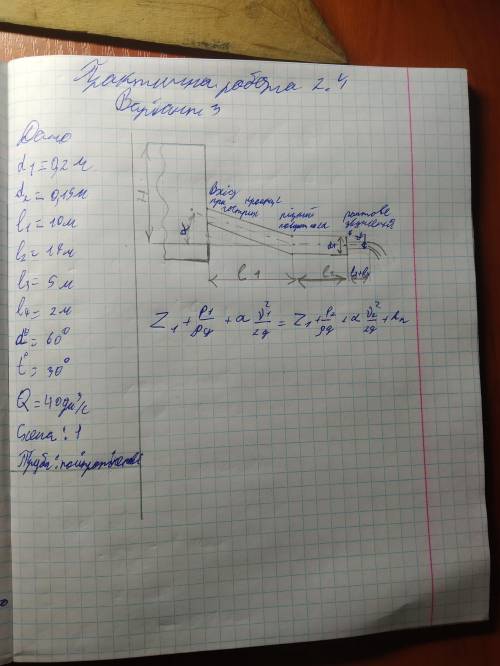 Практична робота 2.4
Варіант 3
Дано
d1 = 0,2 м
d2 = 0,15 м
l1 = 10 м
l2 = 14 м
l3 = 5 м
l4 = 2 м
α° = 60°
t° = 30°
Q = 40 дм³/с
Схема: 1
Труба:
H
α
Вхід при гострих кромках
різкий поворот
раптове звуження
d1
l1
l2
l3+l4
Z1 + P1/ρg + α V1²/2g = Z1 + P2/ρg + α V2²/2g + hп